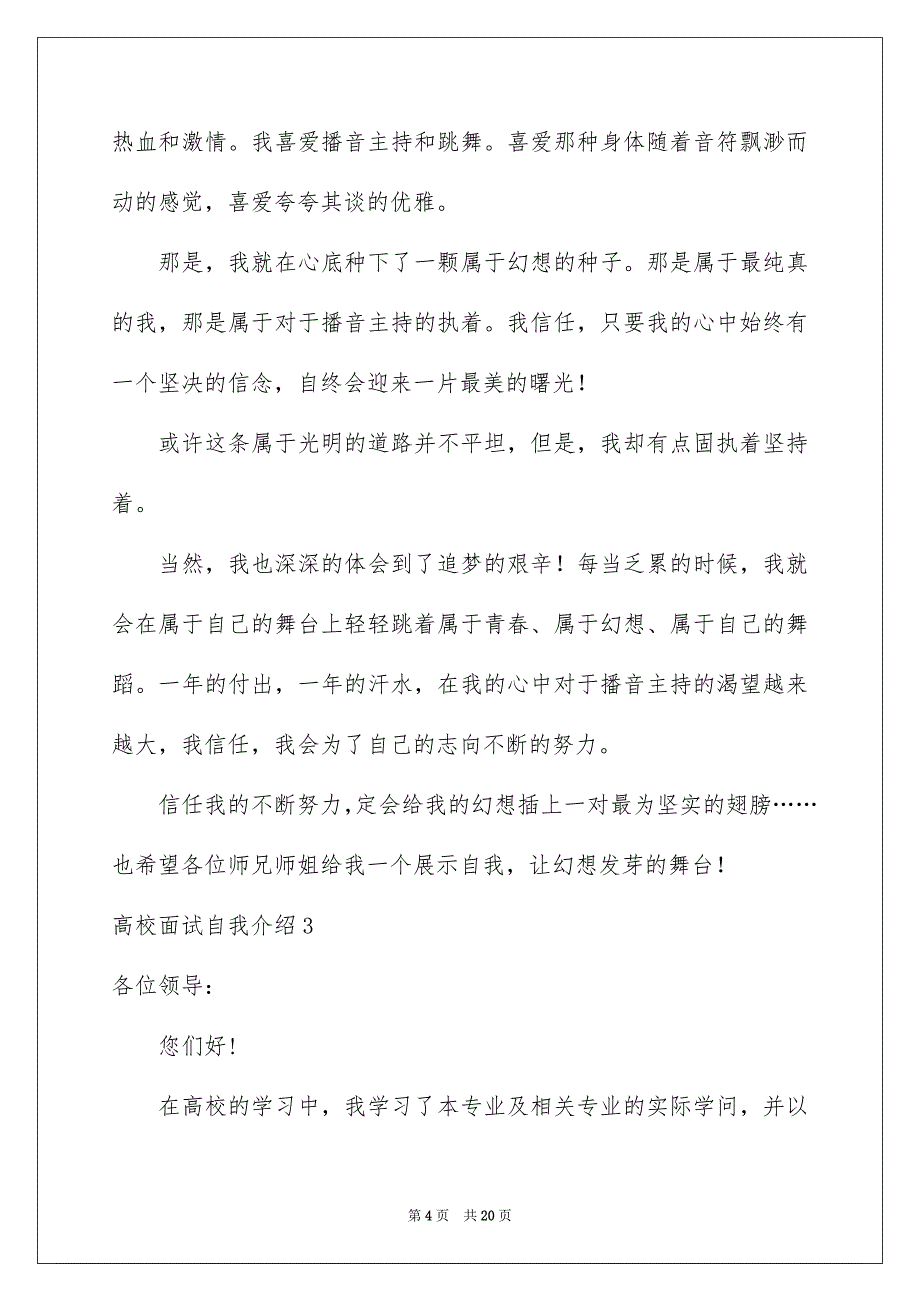 热血和激情。我喜爱播音主持和跳舞。喜爱那种身体随着音符飘渺而
动的感觉，喜爱夸夸其谈的优雅。
那是，我就在心底种下了一颗属于幻想的种子。那是属于最纯真
的我，那是属于对于播音主持的执着。我信任，只要我的心中始终有
一个坚决的信念，自终会迎来一片最美的曙光！
或许这条属于光明的道路并不平坦，但是，我却有点固执着坚持
着。
当然，我也深深的体会到了追梦的艰辛！每当乏累的时候，我就
会在属于自己的舞台上轻轻跳着属于青春、属于幻想、属于自己的舞
蹈。一年的付出，一年的汗水，在我的心中对于播音主持的渴望越来
越大，我信任，我会为了自己的志向不断的努力。
信任我的不断努力,定会给我的幻想插上一对最为坚实的翅膀……
也希望各位师兄师姐给我一个展示自我，让幻想发芽的舞台！
高校面试自我介绍3
各位领导：
您们好！
在高校的学习中，我学习了本专业及相关专业的实际学问，并以
第 4 页 共 20 页